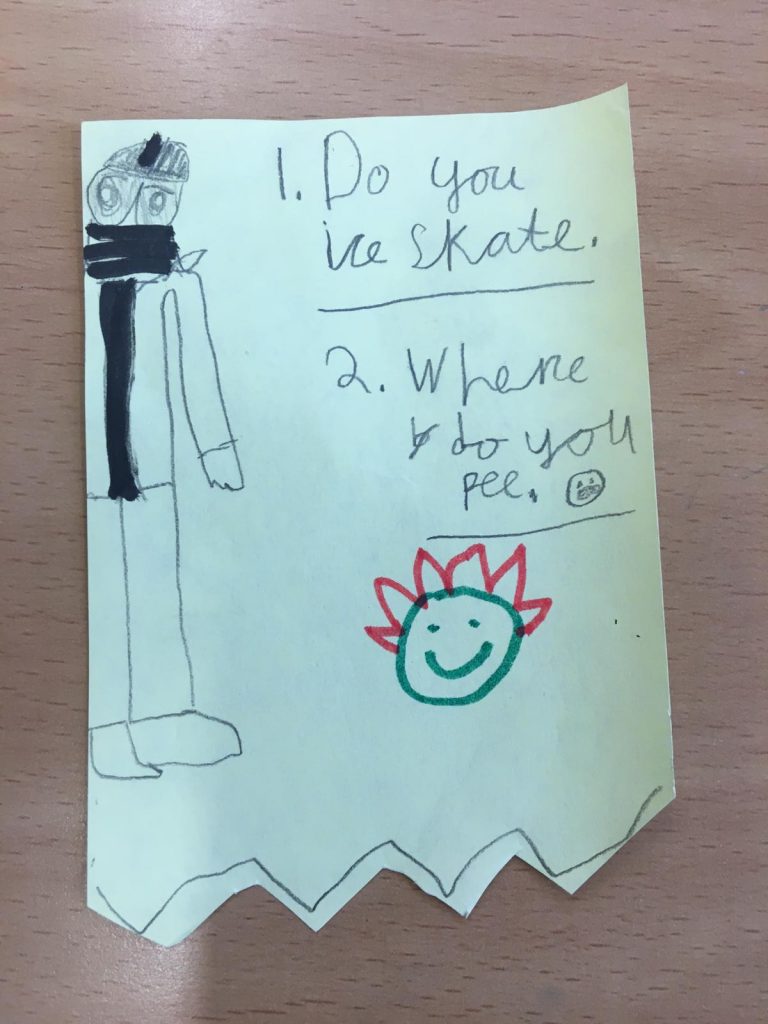 1. Do you
ice skate.
2. Where
do you
pee.